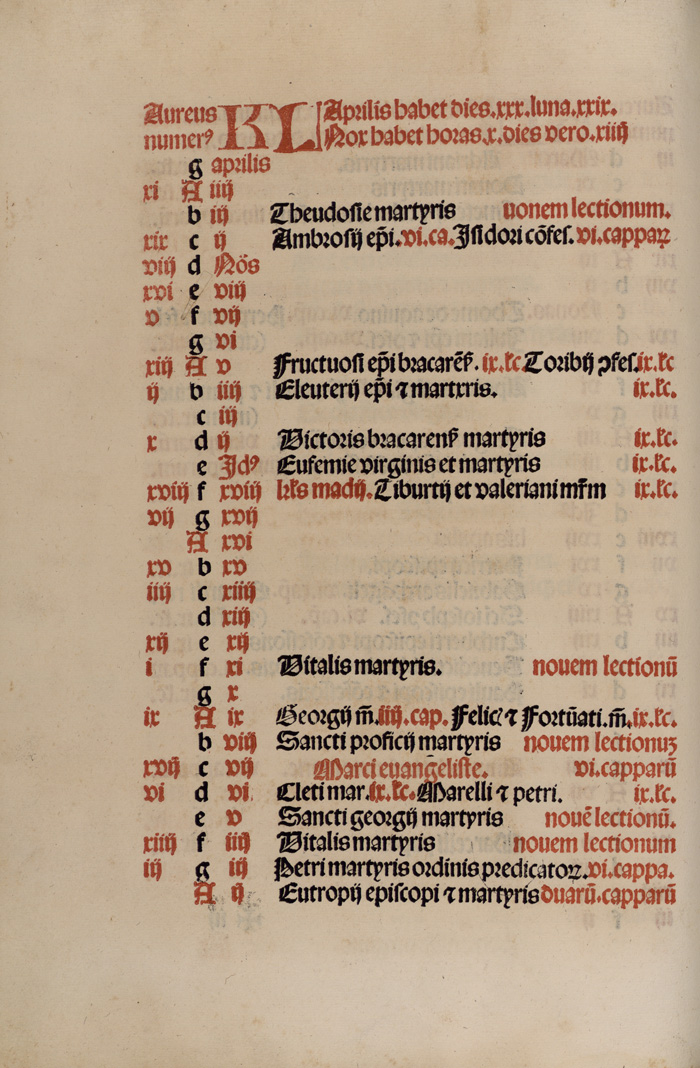 Aureus KL Aprilis habet dies.xxx.luna.xxix.
numerꝰ Nox habet horas.x.dies vero.xiiij
g aprilis
xi A iiij
b iij Theudosie martyris uonem lectionum.
xix c ij Ambrosij ep̄i.vi.ca.Jsidori cōfes.vi.cappaꝝ
viij d Nōs
xvi e viij
v f vij
g vi
xiij A v Fructuosi ep̄i bracarēß.ix.lc̄ Toribij ꝯfes.ix.lc̄
ij b iiij Eleuterij ep̄i ⁊ martxris. ix.lc̄.
c iij
x d ij Victoris bracarenß martyris ix.lc̄.
e Jdꝰ Eufemie virginis et martyris ix.lc̄.
xviij f xviij kl̄s madij.Tiburtij et valeriani mr̄m ix.lc̄.
vij g xvij
A xvi
xv b xv
iiij c xiiij
d xiij
xij e xij
i f xi Vitalis martyris. nouem lectionū
g x
ix A ix Georgij m̄.iiij.cap. Felicꝭ ⁊ Fortūati.m̄.ix.lc̄.
b viij Sancti proficij martyris nouem lectionuꝫ
xvij c vij Marci euangeliste. vi.capparū
vi d vi. Cleti mar.ix.lc̄.Marelli ⁊ petri. ix.lc̄.
e v Sancti georgij martyris nouē lectionū.
xiiij f iiij Vitalis martyris nouem lectionum
iij g iij Petri martyris ordinis predicatoꝝ.vi.cappa.
A ij Eutropij episcopi ⁊ martyris duarū.capparū